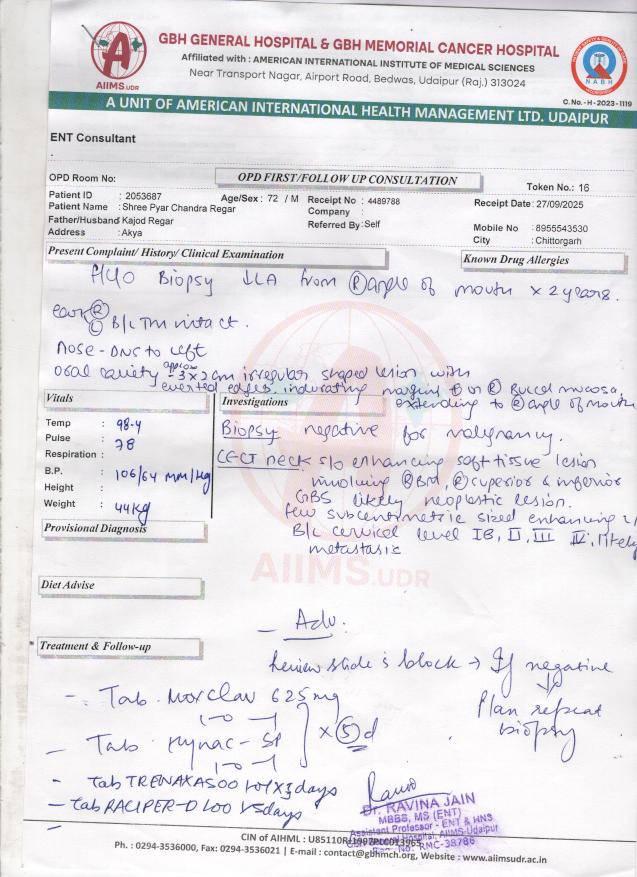 AIIMS.UDR
GBH GENERAL HOSPITAL & GBH MEMORIAL CANCER HOSPITAL
Affiliated with : AMERICAN INTERNATIONAL INSTITUTE OF MEDICAL SCIENCES
Near Transport Nagar, Airport Road, Bedwas, Udaipur (Raj.) 313024
NABH
C. No. - H - 2023 - 1119
A UNIT OF AMERICAN INTERNATIONAL HEALTH MANAGEMENT LTD. UDAIPUR
ENT Consultant
OPD Room No: OPD FIRST/FOLLOW UP CONSULTATION Token No.: 16
Patient ID : 2053687 Age/Sex : 72 / M Receipt No : 4489788 Receipt Date : 27/09/2025
Patient Name : Shree Pyar Chandra Regar Company :
Father/Husband Kajod Regar Referred By : Self Mobile No : 8955543530
Address : Akya City : Chittorgarh
Present Complaint/ History/ Clinical Examination Known Drug Allergies
H/O Biopsy from (R) angle of mouth x 2 years.
ear (R)
(L) B/L TM intact.
nose - DNS to left
oral cavity - approx 3 x 2 cm irregular shaped lesion with
everted edges, indurating margins on (R) Buccal mucosa
extending to (R) angle of mouth
Vitals Investigations
Temp : 98.4 Biopsy negative for malignancy.
Pulse : 78 CECT neck s/o enhancing soft tissue lesion
Respiration : involving (R) (R) superior & inferior
B.P. : 106/64 mm/Hg GBS likely neoplastic lesion.
Height : few subcentimetric sized enhancing
Weight : 44kg B/L cervical level IB, II, III IV, likely
metastasic
Provisional Diagnosis
AIIMS.UDR
Diet Advise
- Adv.
Treatment & Follow-up
Review slide & block → If negative
Plan repeat
biopsy
- Tab. Moxclav 625mg
1-0-1
- Tab Hynac-SP x (5) d
1-0-1
- Tab TRENAXA 500 1-0-1 x 3 days
- Tab RACIPER-D 1-0-0 x 5 days
Dr. RAVINA JAIN
MBBS, MS (ENT)
Assistant Professor - ENT & HNS
GBH General Hospital, AIIMS-Udaipur
Reg. No. RMC-38786
CIN of AIHML : U85110RJ1997PLC013965
Ph. : 0294-3536000, Fax: 0294-3536021 | E-mail : contact@gbhmch.org, Website : www.aiimsudr.ac.in